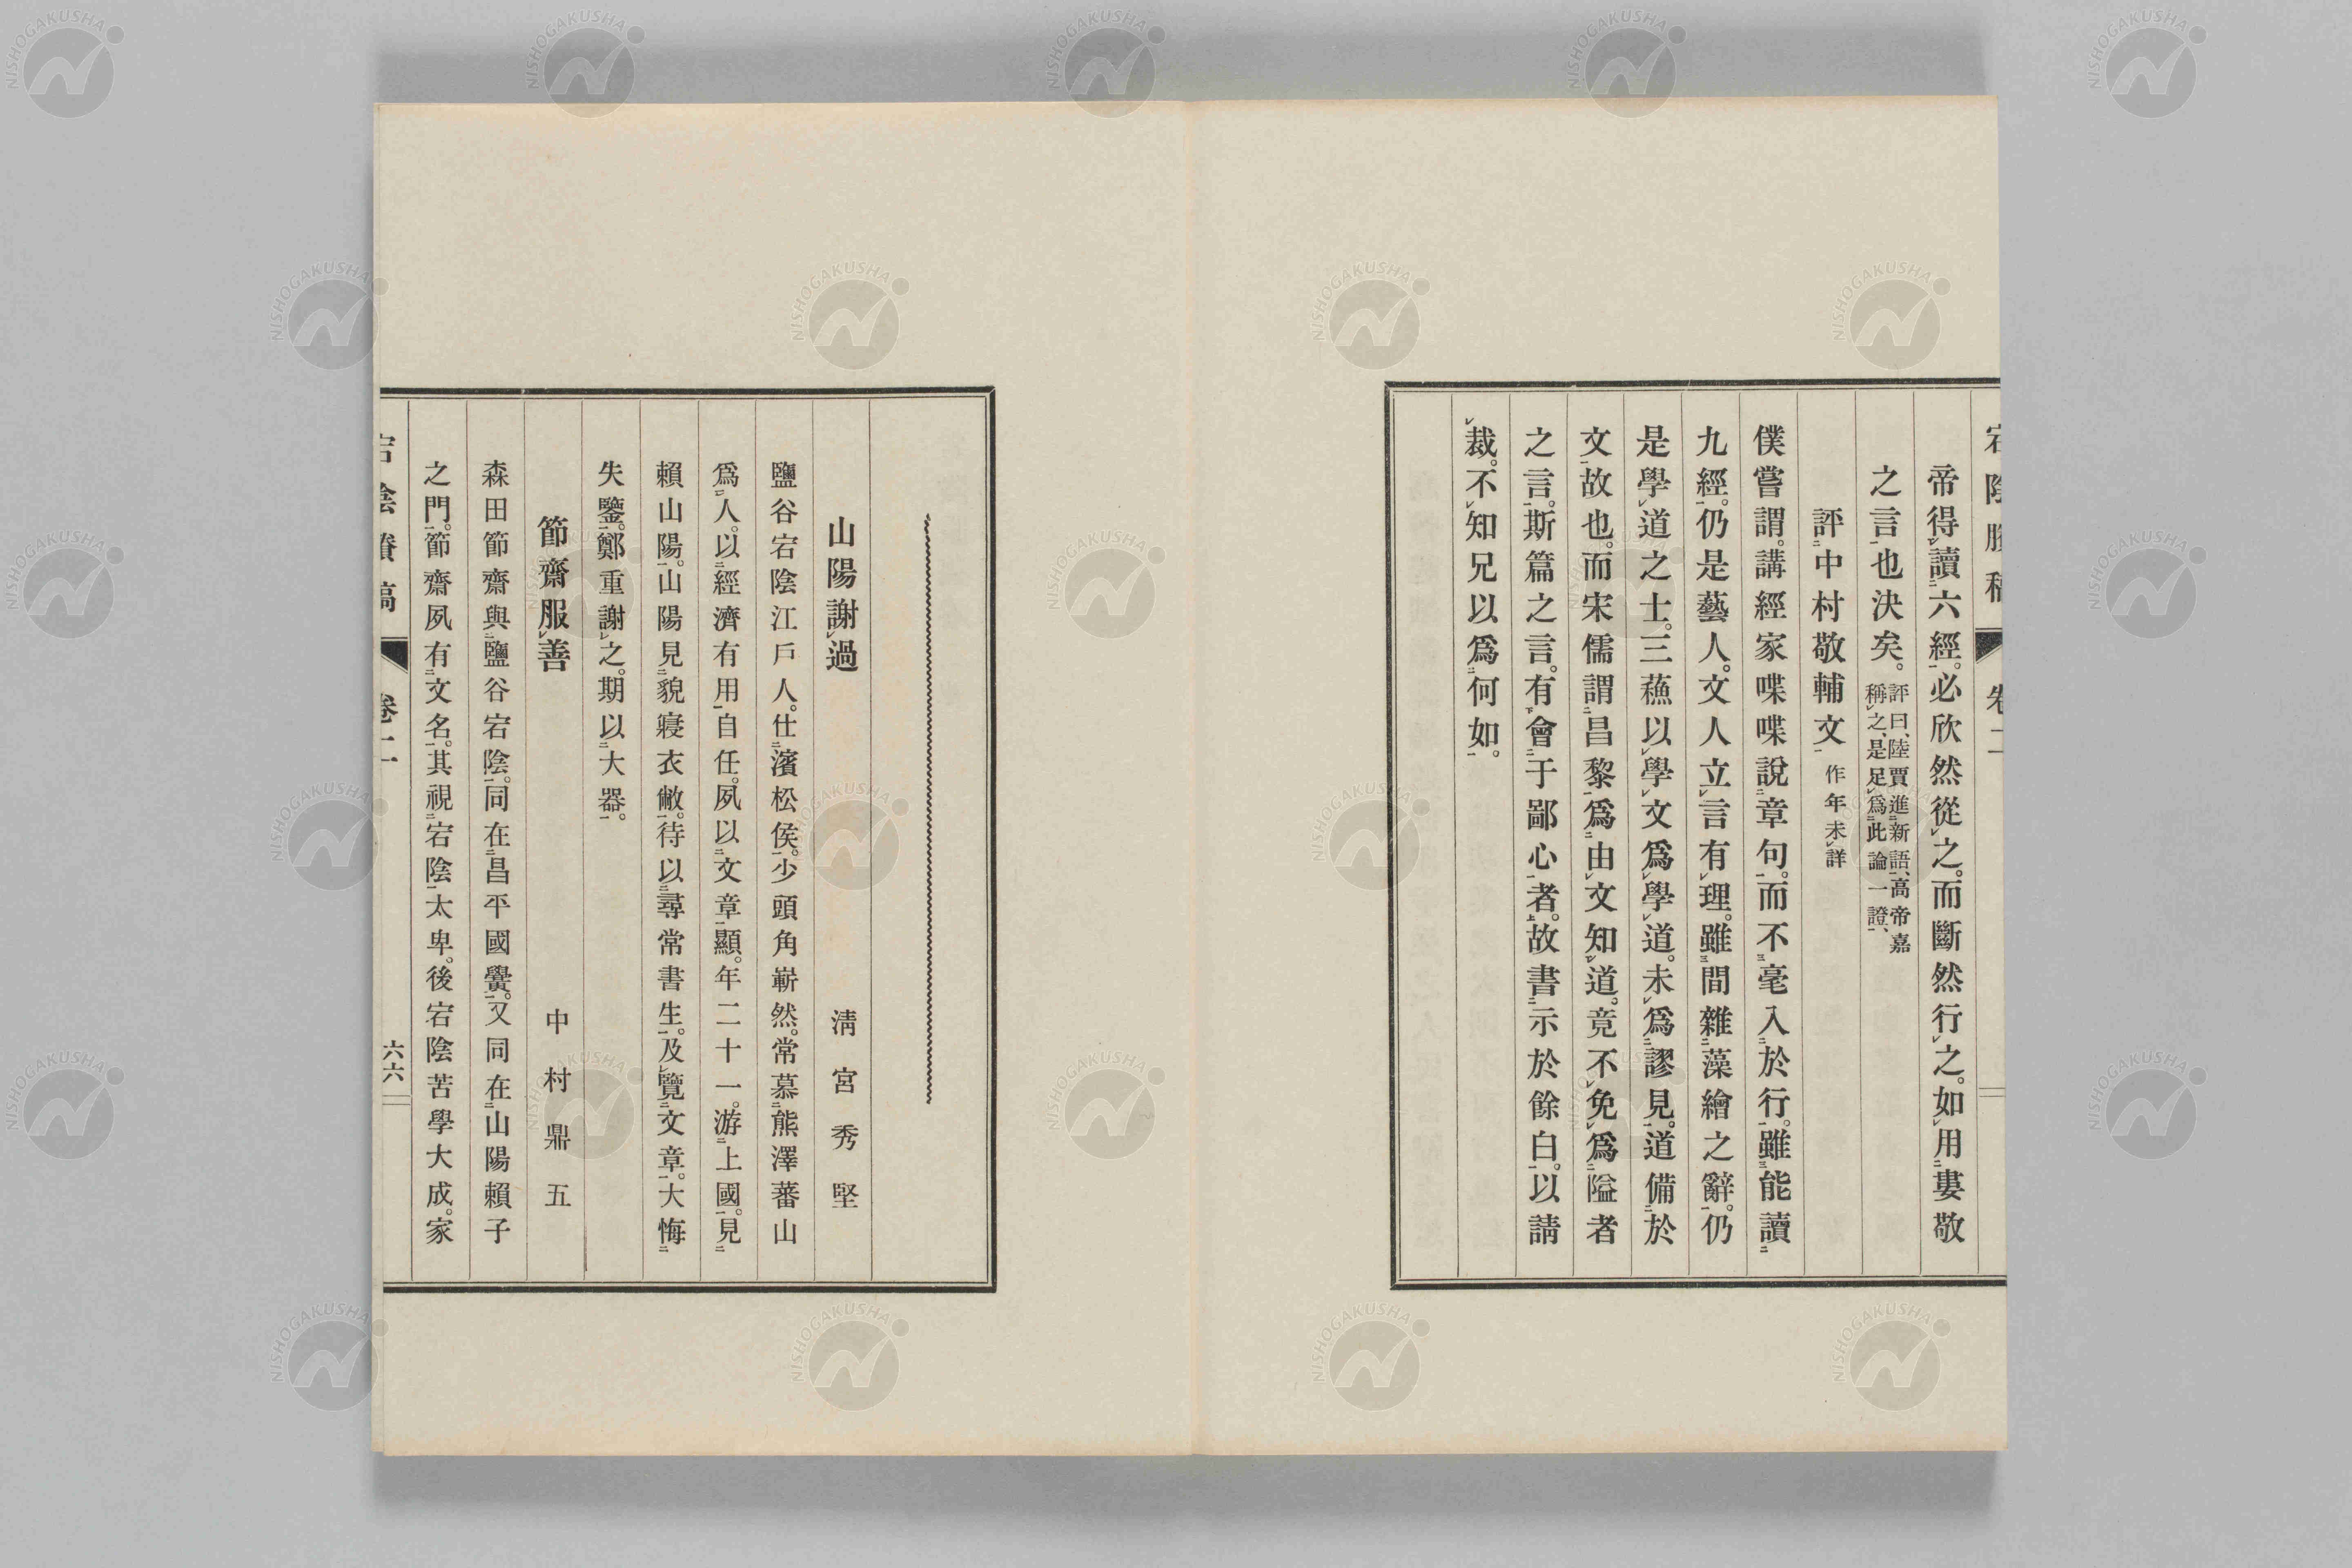 宕陰賸稿 卷二
帝得讀六經。必欣然從之。而斷然行之。如用婁敬
之言也決矣。評曰、陸賈進新語、高帝嘉
稱之、是足爲此論一證、
評中村敬輔文 作年未詳
僕嘗謂。講經家喋喋說章句。而不毫入於行。雖能讀
九經。仍是藝人。文人立言有理。雖間雜藻繪之辭。仍
是學道之士。三蘓以學文爲學道。未爲謬見。道備於
文故也。而宋儒謂昌黎爲由文知道。竟不免爲隘者
之言。斯篇之言。有會于鄙心者。故書示於餘白。以請
裁。不知兄以爲何如。
山陽謝過 淸宮秀堅
鹽谷宕陰江戶人。仕濱松侯。少頭角嶄然。常慕熊澤蕃山
爲人。以經濟有用自任。夙以文章顯。年二十一。游上國。見
賴山陽。山陽見貌寢衣敝。待以尋常書生。及覽文章。大悔
失鑒。鄭重謝之。期以大器。
節齋服善 中村鼎五
森田節齋與鹽谷宕陰。同在昌平國黌。又同在山陽賴子
之門。節齋夙有文名。其視宕陰太卑。後宕陰苦學大成。家
宕陰賸稿 卷二 六六